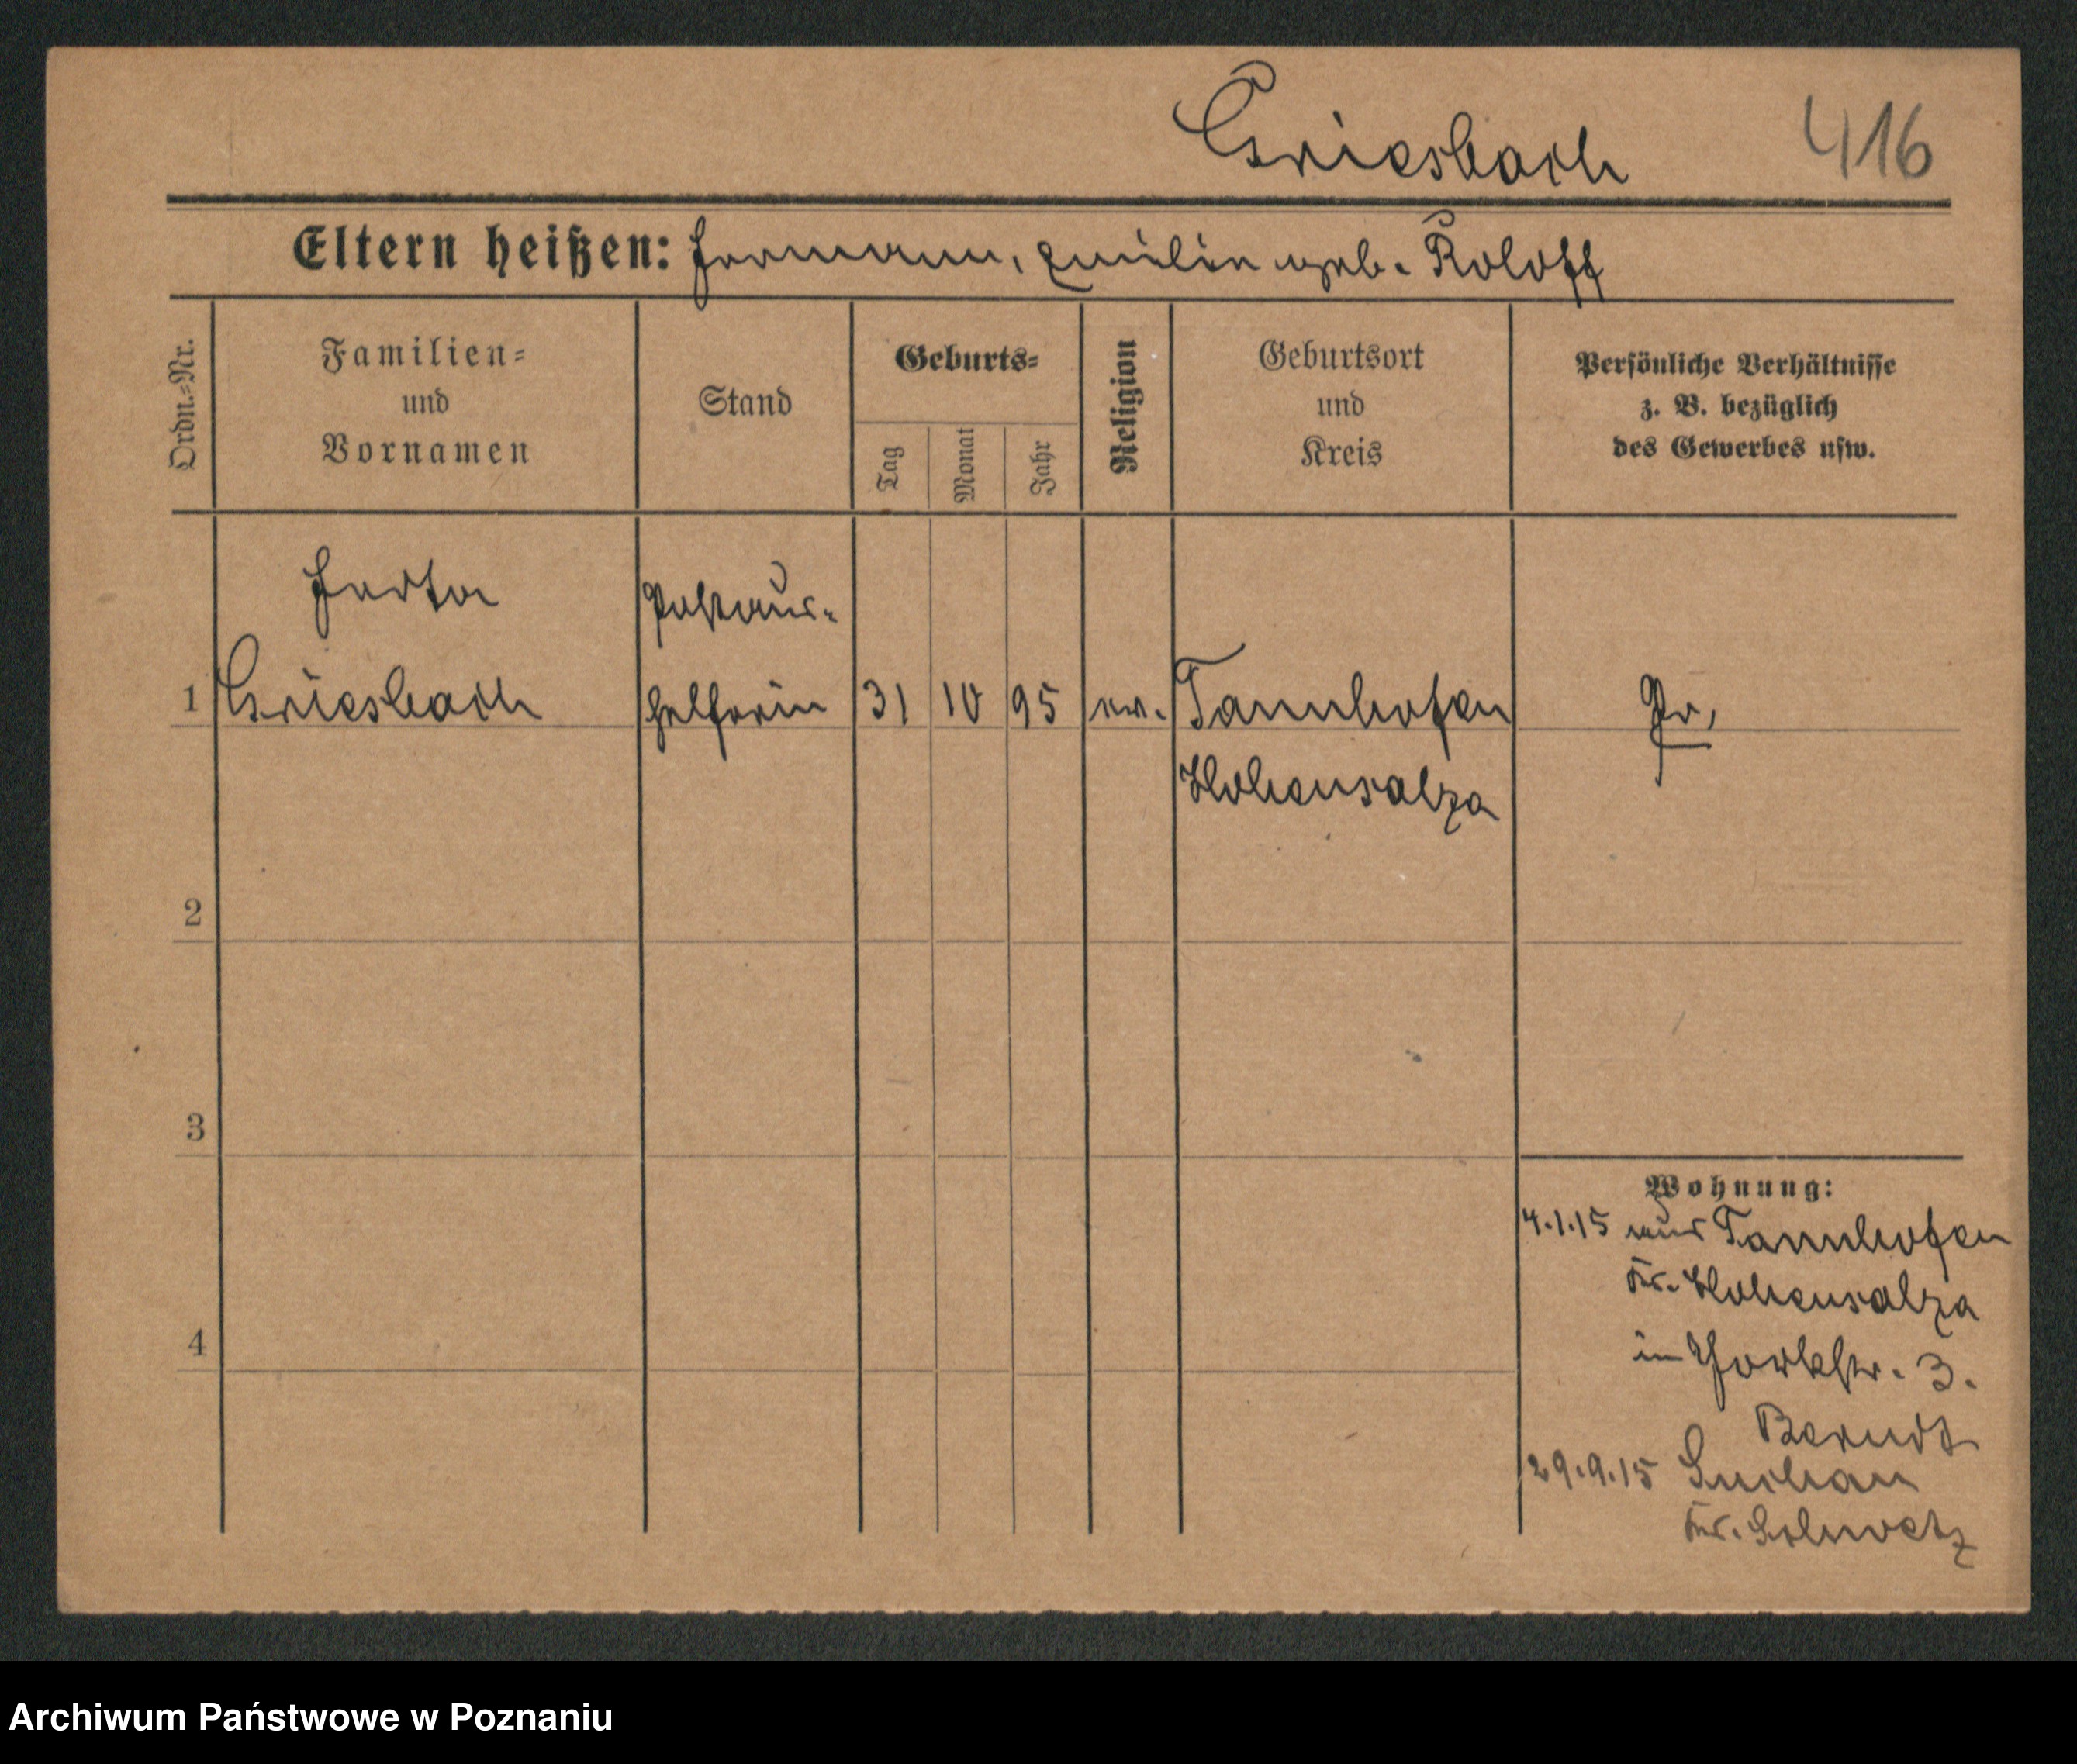 Griesbach 416
Eltern heißen: Hermann, Emilie geb. Roloff
Ordn.-Nr.
Familien-
und
Vornamen
Stand
Geburts-
Tag
Monat
Jahr
Religion
Geburtsort
und
Kreis
Persönliche Verhältnisse
z. B. bezüglich
des Gewerbes usw.
Herta Postaus-
1 Griesbach helferin 31 10 95 ev. Tannhofen Pr.
Hohensalza
2
3
4
Wohnung:
4.1.15 aus Tannhofen
Kr. Hohensalza
in Yorkstr. 3.
Berndt
29.9.15 Suchau
Kr. Schwetz
Archiwum Państwowe w Poznaniu